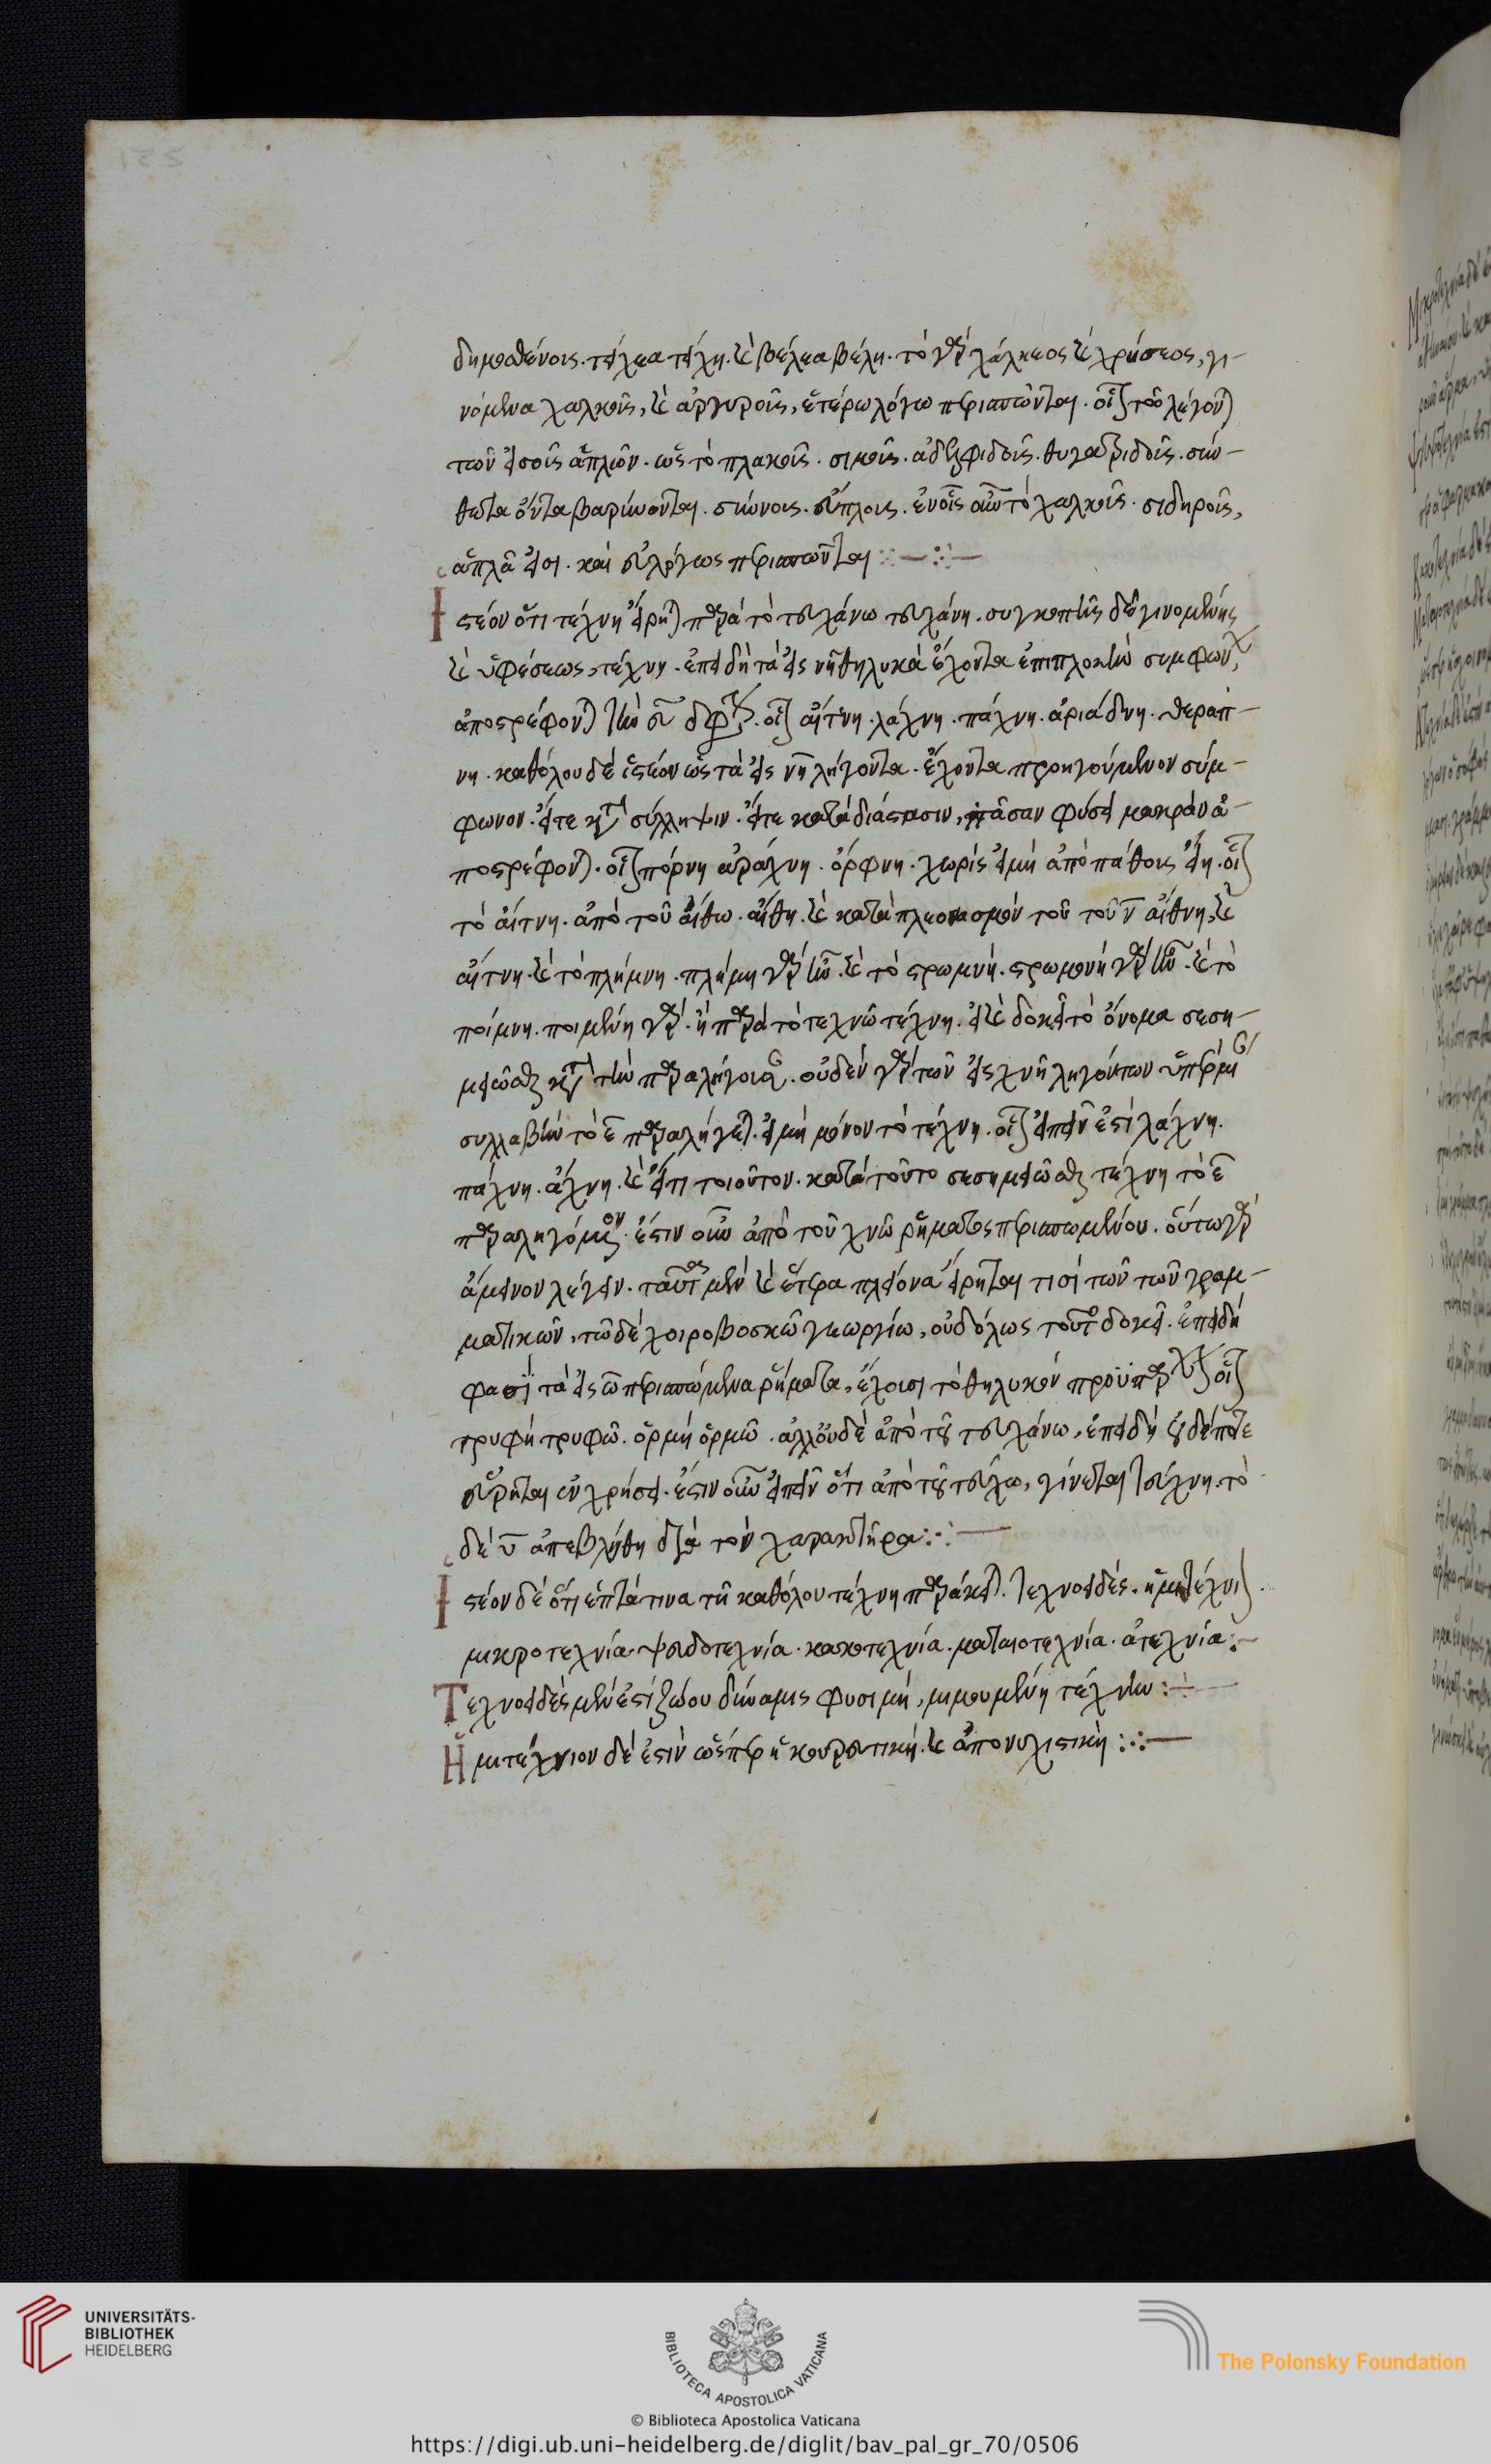 δημοσθένους. τείχεα τείχη. καὶ βέλεα βέλη. τὸ γὰρ χάλκεος καὶ χρύσεος, γι-
νόμενα χαλκοῦς, καὶ ἀργυροῦς, ἑτέρω λόγω περισπῶνται. οἷον
τῶν εἰς οῦς ἁπλῶν. ὡς τὸ πλακοῦς. σιμοῦς. ἀδελφιδοῦς. θυγατριδοῦς. σύν-
θετα ὄντα βαρύνονται. εὔπλους. σιδηροῦς,
ἁπλᾶ εἰσι. καὶ εὐλόγως περισπῶνται
Ἰστέον ὅτι τέχνη εἴρηται παρὰ τὸ τευχάνω τευχάνη. συγκοπῆς δὲ γινομένης
καὶ ὑφέσεως, τέχνη. ἐπειδὴ τὰ εἰς νη θηλυκὰ ἔχοντα ἐπιπλοκὴν συμφώνου,
ἀποστρέφονται τὴν ευ δίφθογγον. οἷον αἴτνη. λάχνη. πάχνη. ἀριάδνη. θεράπ-
νη. καθόλου δὲ ἰστέον ὡς τὰ εἰς νη λήγοντα. ἔχοντα προηγούμενον σύμ-
φωνον. εἴτε κατὰ σύλληψιν. εἴτε κατὰ διάστασιν, πᾶσαν φύσει μακρὰν ἀ-
ποστρέφονται. οἷον πόρνη ἀράχνη. ὄρφνη. χωρὶς εἰ μὴ ἀπὸ πάθους εἴη. οἷον
τὸ αἴτνη. ἀπὸ τοῦ αἴθω. αἴθη. καὶ κατὰ πλεονασμὸν τοῦ ν αἴθνη, καὶ
αἴτνη. καὶ τὸ πλήμνη. πλήμη γὰρ ἦν. καὶ τὸ στρωμνή. στρωμονή γὰρ ἦν. καὶ τὸ
ποίμνη. ποιμένη γάρ. ἢ παρὰ τὸ τεχνῶ τέχνη. εἰ καὶ δοκεῖ τὸ ὄνομα σεση-
μειῶσθαι κατὰ τὴν παραλήγουσαν. οὐδὲν γὰρ τῶν εἰς χνη ληγόντων ὑπὲρ μίαν
συλλαβὴν τὸ ε παραλήγεται. εἰ μὴ μόνον τὸ τέχνη. οἷον εἰπεῖν ἐστὶ λάχνη.
πάχνη. ἄχνη. καὶ εἴ τι τοιοῦτον. κατὰ τοῦτο σεσημειῶσθαι τέχνη τὸ ε
παραληγόμενον. ἔστιν οὖν ἀπὸ τοῦ χνῶ ῥήματος περισπωμένου. οὕτω γὰρ
ἄμεινον λέγειν. ταῦτα μὲν καὶ ἕτερα πλείονα εἴρηται τισὶ τῶν τῶν γραμ-
ματικῶν, τῶ δὲ χοιροβοσκῶ γεωργίω, οὐδόλως τοῦτο δοκεῖ. ἐπειδὴ
φασὶ τὰ εἰς ω περισπώμενα ῥήματα, ἔχουσι τὸ θηλυκὸν προϋπάρχον οἷον
τρυφή τρυφῶ. ὁρμή ὁρμῶ. ἀλλ' οὐδὲ ἀπὸ τοῦ τευχάνω, ἐπειδὴ οὐδέποτε
εὕρηται ἐν χρήσει. ἔστιν οὖν εἰπεῖν ὅτι ἀπὸ τοῦ τεύχω, γίνεται τεύχνη. τὸ
δὲ υ ἀπεβλήθη διὰ τὸν χαρακτῆρα
Ἰστέον δὲ ὅτι ἑπτά τινα τῆ καθόλου τέχνη παράκειται. τεχνοειδές. ἡμιτέχνιον.
μικροτεχνία. ψευδοτεχνία. κακοτεχνία. ματαιοτεχνία. ἀτεχνία:
Τεχνοειδὲς μέν ἐστι ζώου δύναμις φυσική, μιμουμένη τέχνην:
Ἡμιτέχνιον δέ ἐστιν ὥσπερ ἡ κουρευτική. καὶ ἀπονυχιστική:
UNIVERSITÄTS-
BIBLIOTHEK
HEIDELBERG
BIBLIOTECA APOSTOLICA VATICANA
The Polonsky Foundation
© Biblioteca Apostolica Vaticana
https://digi.ub.uni-heidelberg.de/diglit/bav_pal_gr_70/0506